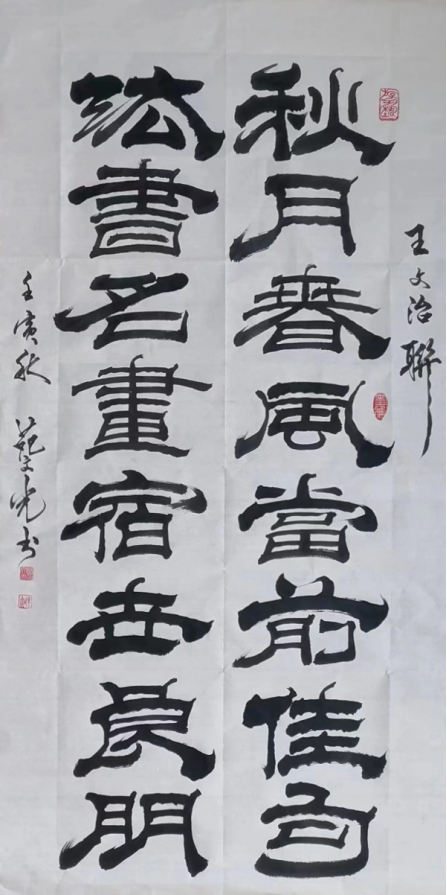 王文治聯
秋月春風當前佳句
法書名畫宿世良朋
壬寅秋 光书